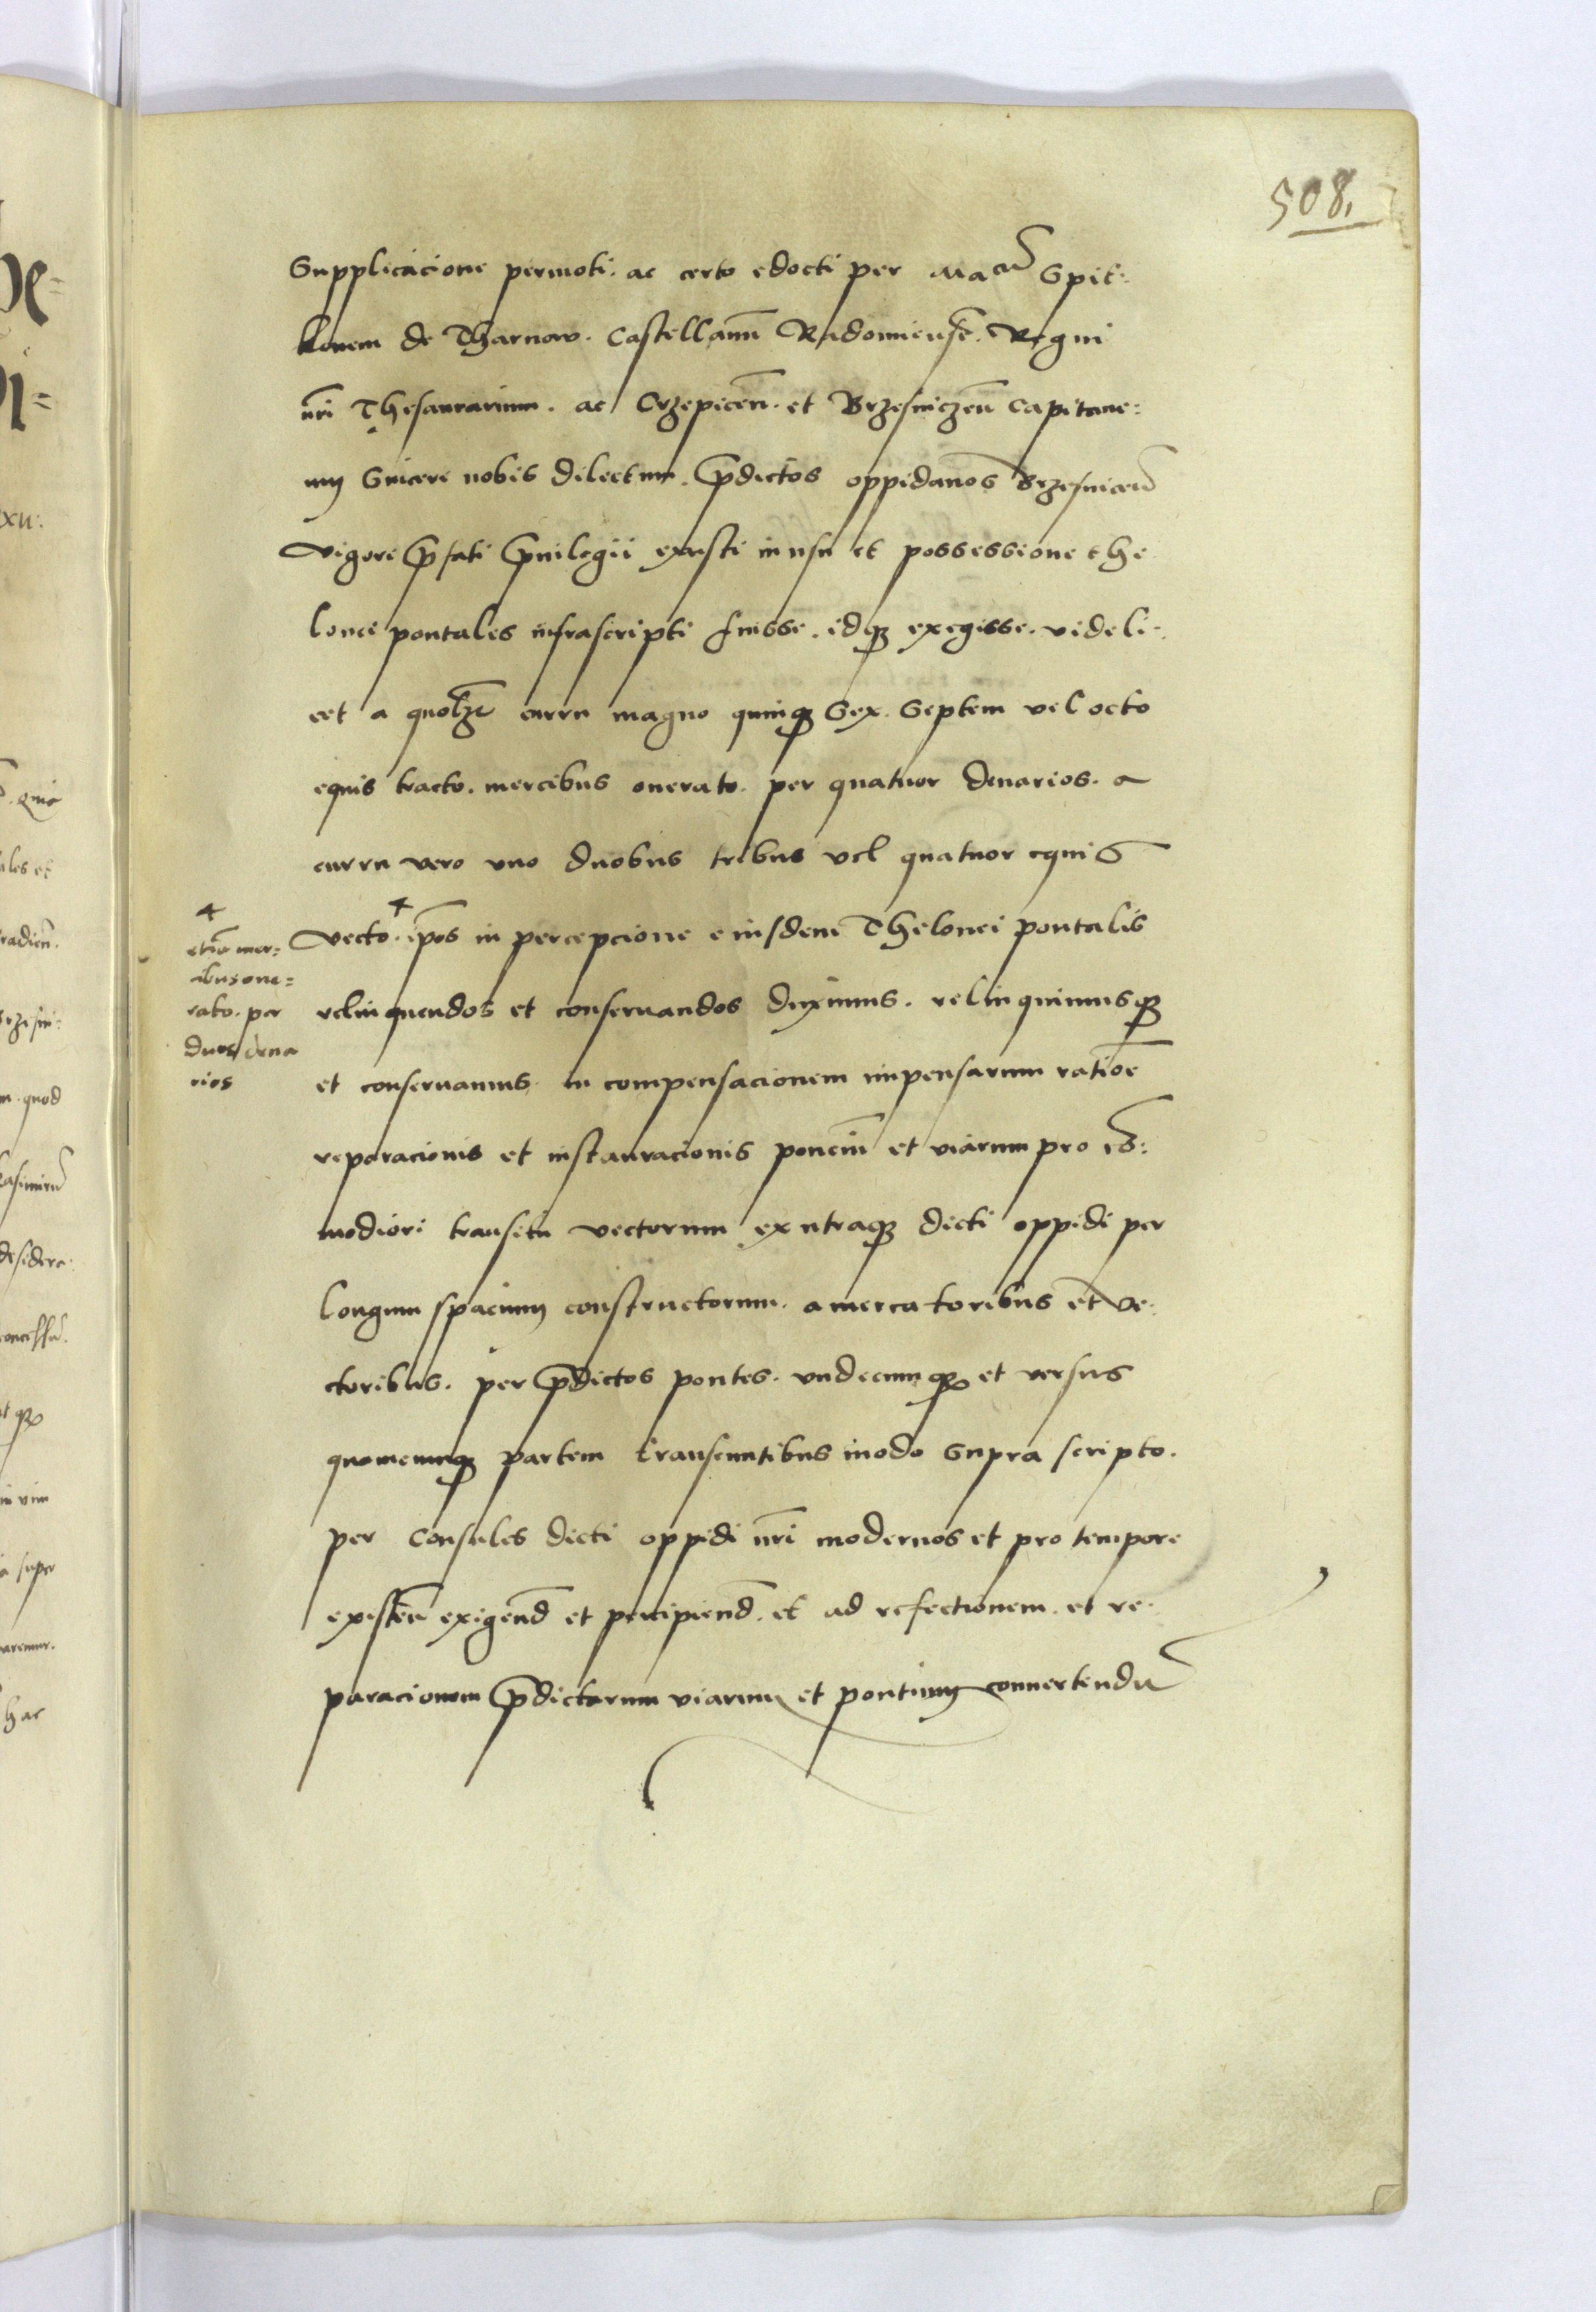 508.
Supplicacione permoti. ac certo edocti per Mag̃cũ Spit:
konem de Tharnow. Castellanũ Radomiensẽ. Regni
nr̃i Thesaurarium. ac Crzepicen̄. et Brzesniczen̄ Capitane:
um Sincere nobis dilectum. p̃dictos oppidanos Brzesnicen̄
vigore p̃fati p̃uilegii exusti in usu et possessione the
lonei pontales infrascripti fuisse. idq3 exegisse. videli:
cet a quolz̃ curru magno quinq3 Sex. Septem vel octo
equis tracto. mercibus onerato. per quatuor denarios. a
curru vero uno duobus tribus vel quatuor equis
vecto. ip̃os in percepcione eiusdem Thelonei pontalis
relinquendos et conseruandos duximus. relinquimusq3
et conseruamus. in compensacionem impensarum ratiõe
reparacionis et instauracionis poncium̃ et viarum pro
modiori transitu vectorum ex utraq3 dicti oppidi per
longum spacium constructorum. a mercatoribus et ve:
ctoribus. per p̃dictos pontes. undecumq3 et versus
quamcumq3 partem transeuntibus modo Supra scripto.
per Consules dicti oppidi nr̃i modernos et pro tempore
existeñ exigend̃ et percipiend̃. et ad refectionem. et re:
paracionem p̃dictarum viarum et pontium conuertendũ
etiã mer:
cibus one:
rato. per
duos dena
rios